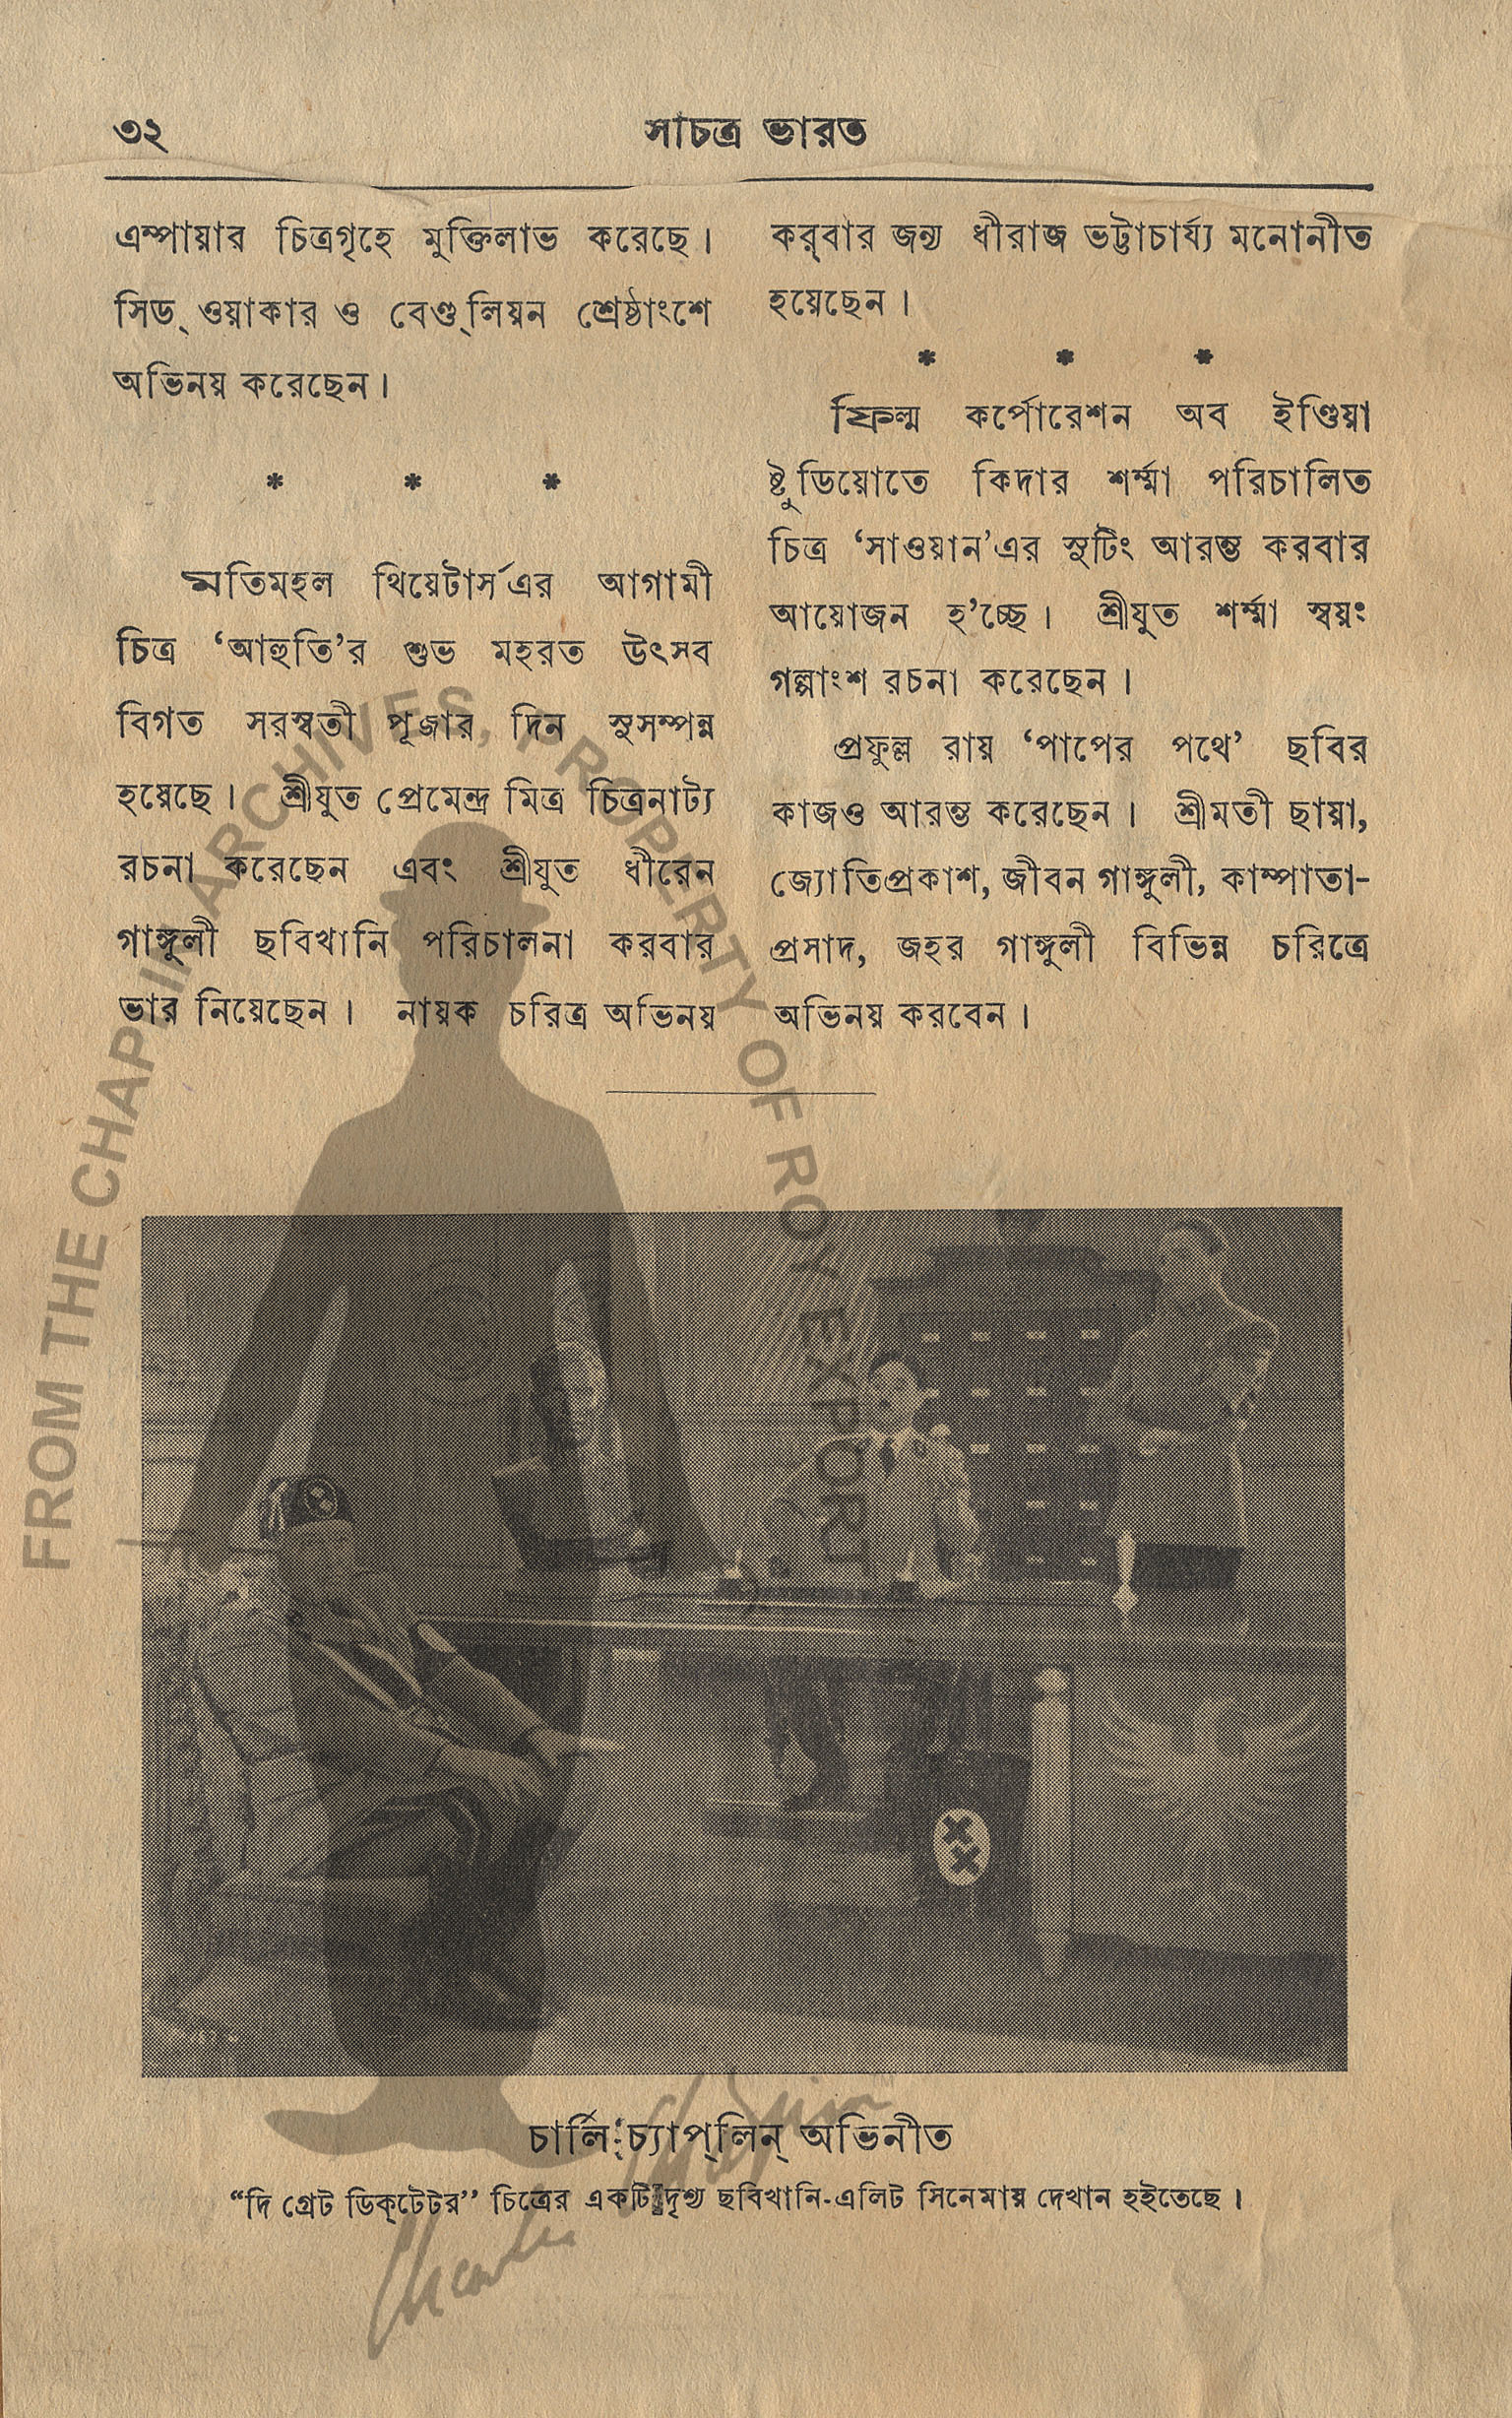 ৩২
সচিত্র ভারত
এম্পায়ার চিত্রগৃহে মুক্তিলাভ করেছে।
সিড্ ওয়াকার ও বেণ্ড্লিয়ন শ্রেষ্ঠাংশে
অভিনয় করেছেন।
* * *
মতিমহল থিয়েটার্স এর আগামী
চিত্র ‘আহুতি’র শুভ মহরত উৎসব
বিগত সরস্বতী পূজার দিন সুসম্পন্ন
হয়েছে। শ্রীযুত প্রেমেন্দ্র মিত্র চিত্রনাট্য
রচনা করেছেন এবং শ্রীযুত ধীরেন
গাঙ্গুলী ছবিখানি পরিচালনা করবার
ভার নিয়েছেন। নায়ক চরিত্র অভিনয়
কর্‌বার জন্য ধীরাজ ভট্টাচার্য্য মনোনীত
হয়েছেন।
* * *
ফিল্ম কর্পোরেশন অব ইণ্ডিয়া
ষ্টুডিয়োতে কিদার শর্ম্মা পরিচালিত
চিত্র ‘সাওয়ান’এর সুটিং আরম্ভ করবার
আয়োজন হ’চ্ছে। শ্রীযুত শর্ম্মা স্বয়ং
গল্পাংশ রচনা করেছেন।
প্রফুল্ল রায় ‘পাপের পথে’ ছবির
কাজও আরম্ভ করেছেন। শ্রীমতী ছায়া,
জ্যোতিপ্রকাশ, জীবন গাঙ্গুলী, কাম্পাতা-
প্রসাদ, জহর গাঙ্গুলী বিভিন্ন চরিত্রে
অভিনয় করবেন।
চার্লি চ্যাপ্‌লিন্ অভিনীত
“দি গ্রেট ডিক্‌টেটর” চিত্রের একটি দৃশ্য ছবিখানি-এলিট সিনেমায় দেখান হইতেছে।
FROM THE CHAPLIN ARCHIVES, PROPERTY OF ROY EXPORT
Charles Chaplin